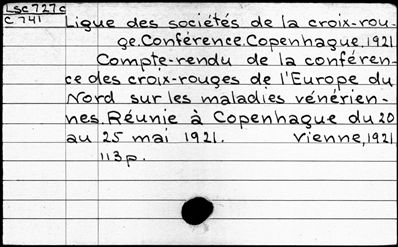 Lsc727c
C741
Ligue des sociétés de la croix-rou-
ge. Conférence. Copenhague. 1921
Compte-rendu de la conféren-
ce des croix-rouges de l'Europe du
Nord sur les maladies vénérien-
nes. Réunie à Copenhague du 20
au 25 mai 1921. Vienne, 1921
113 p.